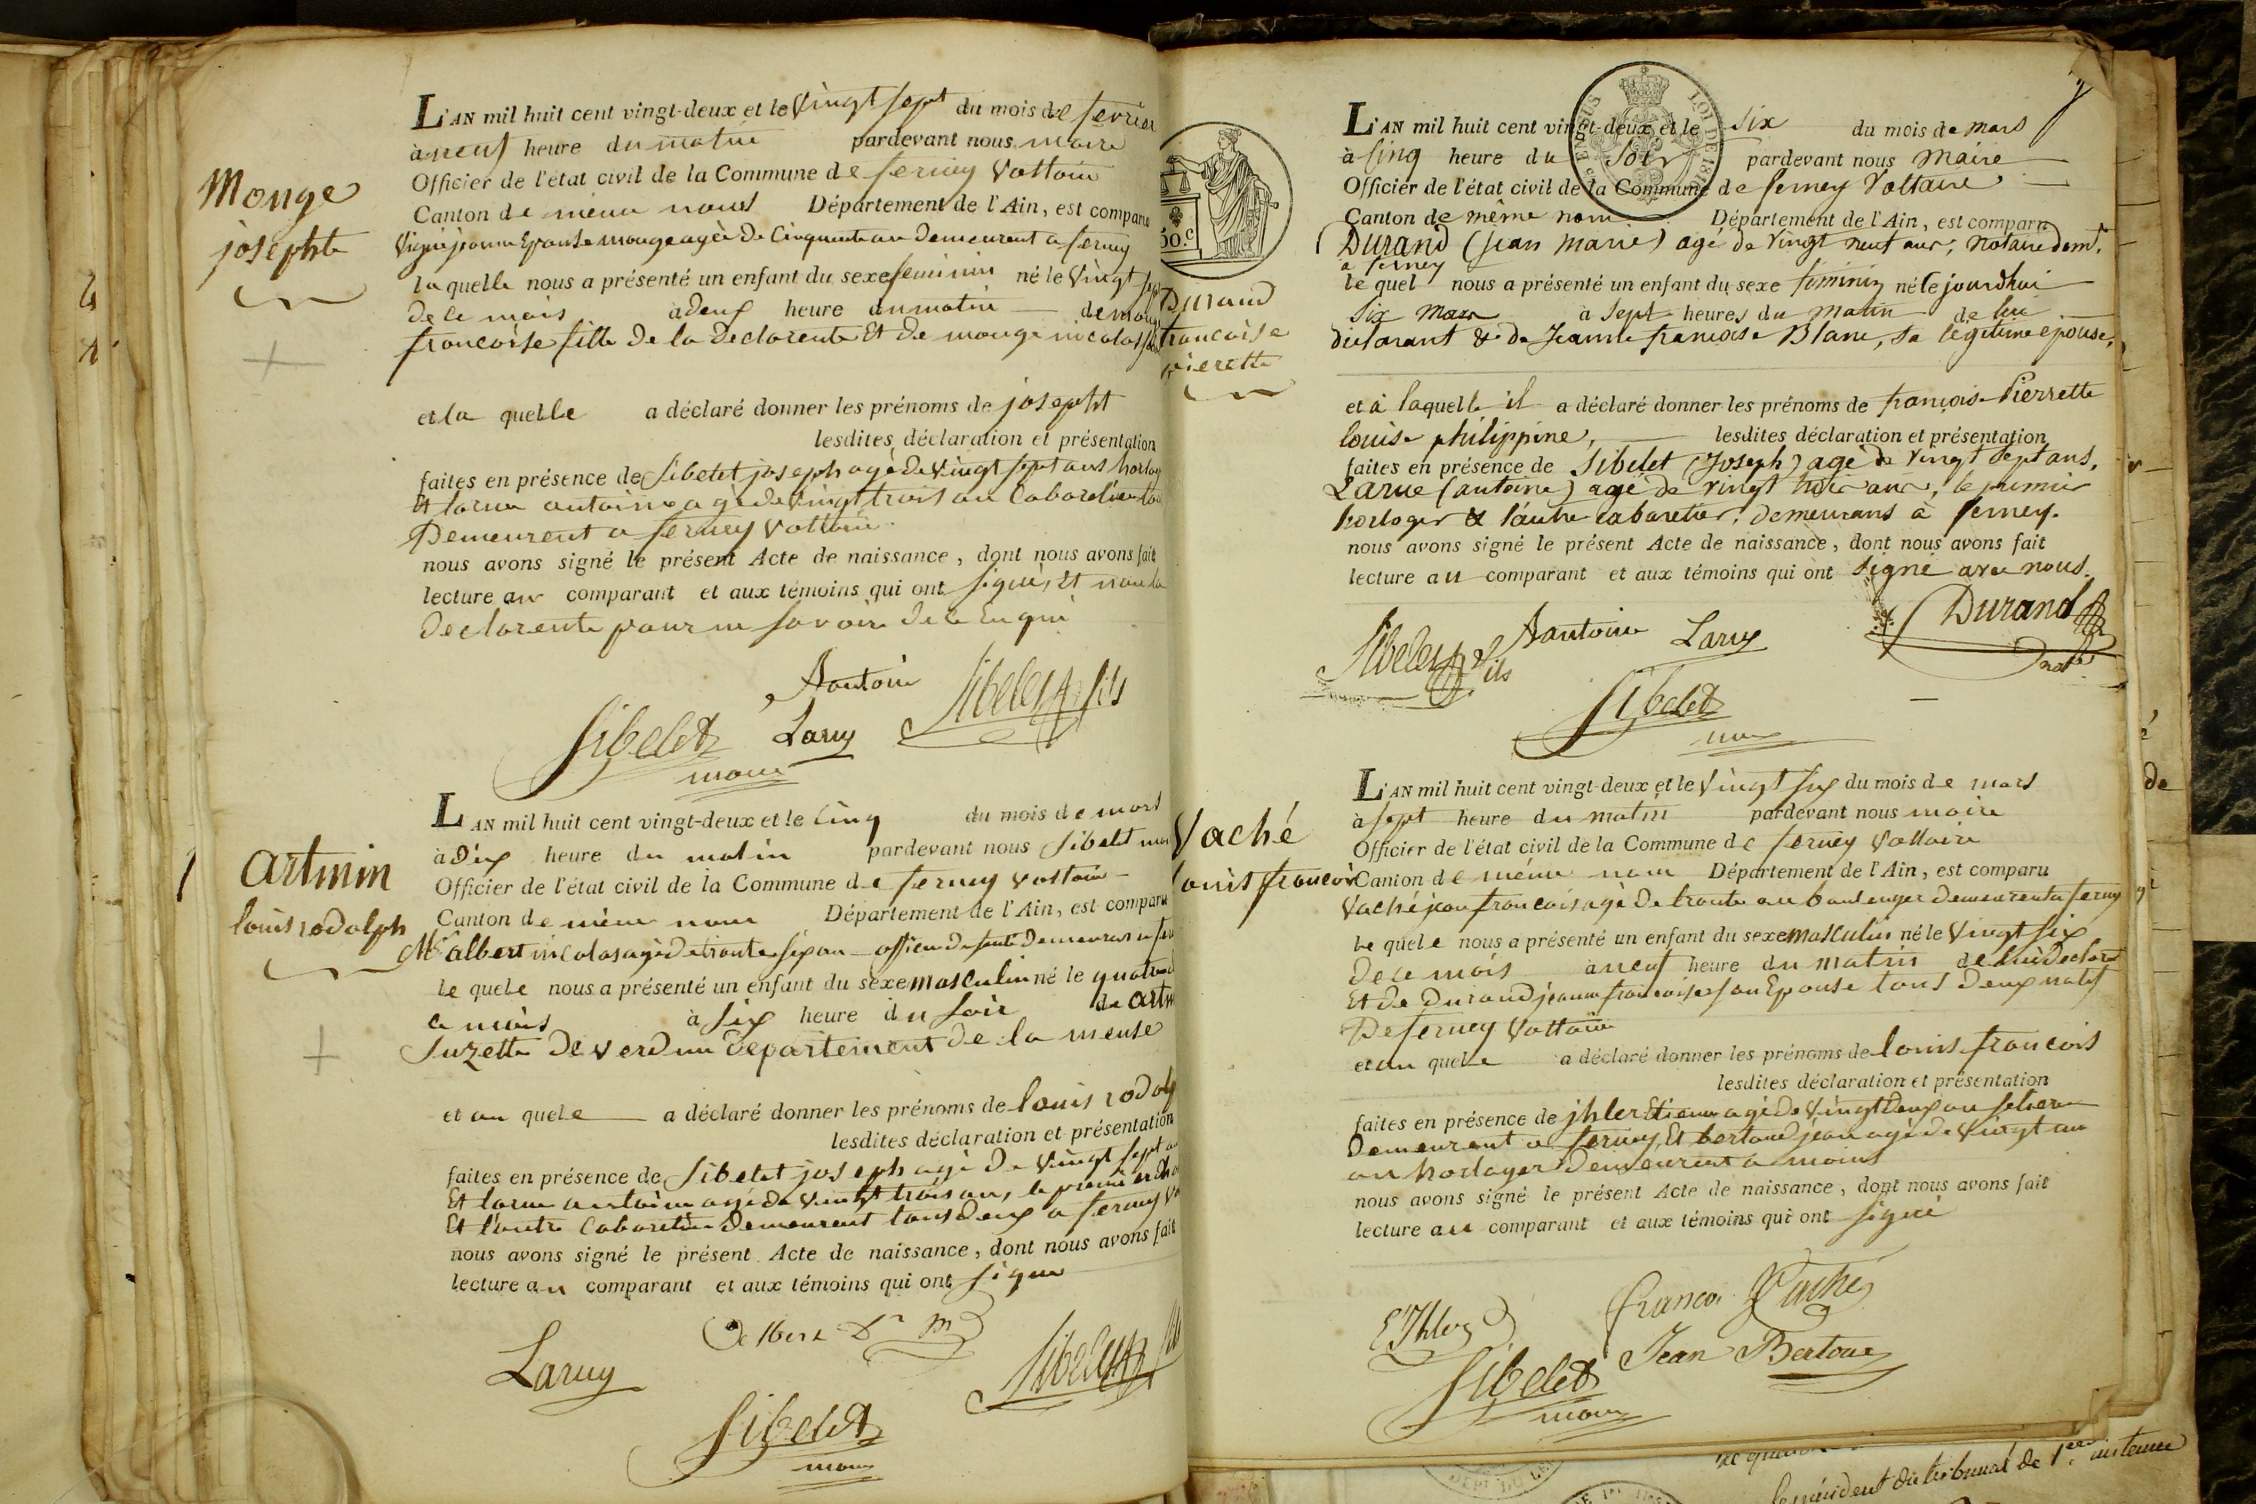 Monge
josephte
L'AN mil huit cent vingt-deux et le vingt sept du mois de fevrier
à neuf heure du matin pardevant nous maire
Officier de l'état civil de la Commune de ferney Voltaire
Canton de meme nom Département de l'Ain, est comparu
jeanne Epouse monge agèe de Cinquante an demeurent a ferney
la quelle nous a présenté un enfant du sexe feminin né le Vingt sept
de ce mois à deux heure du matin de monge
francoise fille de la Declarente Et de monge nicolas
et la quelle a déclaré donner les prénoms de josepht
lesdites déclaration et présentation
faites en présence de Sibelet joseph agé de vingt sept ans horlog
Et larue antoine agé de vingt trois an Cabaretier
Demeurent a ferney Voltaire
nous avons signé le présent Acte de naissance, dont nous avons fait
lecture au comparant et aux témoins qui ont signés Et non la
declarente pour ne savoir de ce Enqui
Antoine
Larue
Sibelet fils
Sibelet
maire
artmin
louis rodolph
L'AN mil huit cent vingt-deux et le cinq du mois de mars
à dix heure du matin pardevant nous Sibelet mai
Officier de l'état civil de la Commune de ferney Voltaire
Canton de meme nom Département de l'Ain, est comparu
Mr albert nicolas agé de trante six an officier de santé demeurant a fer
le quele nous a présenté un enfant du sexe masculin né le quatre d
ce mois à six heure du soir de artm
Suzette de verdun departement de la meuse
et au quele a déclaré donner les prénoms de louis rodolp
lesdites déclaration et présentation
faites en présence de Sibelet joseph agé de vingt sept an
Et larue antoine agé de vingt trois an, le premier
Et l'autre Cabaretier Demeurent tous deux a ferney Vo
nous avons signé le présent Acte de naissance, dont nous avons fait
lecture au comparant et aux témoins qui ont signe
Albert
Larue
Sibelet fils
Sibelet
maire
50.c
Durand
francoise
pierette
L'AN mil huit cent vingt-deux et le six du mois de mars
à cinq heure du soir pardevant nous maire
Officier de l'état civil de la Commune de ferney Voltaire
Canton de même nom Département de l'Ain, est comparu
Durand (jean marie) agé de vingt neuf ans, notaire demt.
a ferney
le quel nous a présenté un enfant du sexe féminin né le jourd'hui
six mars à sept heures du matin de lui
déclarant & de Jeanne françoise Blanc, sa légitime épouse,
et à laquelle il a déclaré donner les prénoms de françoise Pierrette
louise philippine, lesdites déclaration et présentation
faites en présence de Sibelet (Joseph) agé de vingt sept ans,
Larue (antoine) agé de vingt trois ans, le premier
horloger & l'autre cabaretier, demeurans à ferney.
nous avons signé le présent Acte de naissance, dont nous avons fait
lecture au comparant et aux témoins qui ont signé avec nous.
Sibelet fils
Antoine Larue
Durand
not
Sibelet
maire
Vaché
louis francois
L'AN mil huit cent vingt-deux et le Vingt six du mois de mars
à sept heure du matin pardevant nous maire
Officier de l'état civil de la Commune de ferney Voltaire
Canton de même nom Département de l'Ain, est comparu
Vaché jean francois agé de trante an boulenger demeurent a ferney
le quele nous a présenté un enfant du sexe masculin né le Vingt six
de ce mois à neuf heure du matin de lui declarant
Et de Durand jeanne francoise son Epouse tous deux natif
De ferney Voltaire
et au quele a déclaré donner les prénoms de louis francois
lesdites déclaration et présentation
faites en présence de jhler Etienne agé de vingt deux an
Demeurent a ferney, Et bertoud jean agé de Vingt un
an horloger Demeurent a moins
nous avons signé le présent Acte de naissance, dont nous avons fait
lecture au comparant et aux témoins qui ont signé
E Jhler
francoi Vaché
Jean Bertoud
Sibelet
maire
président du tribunal de 1ere instance